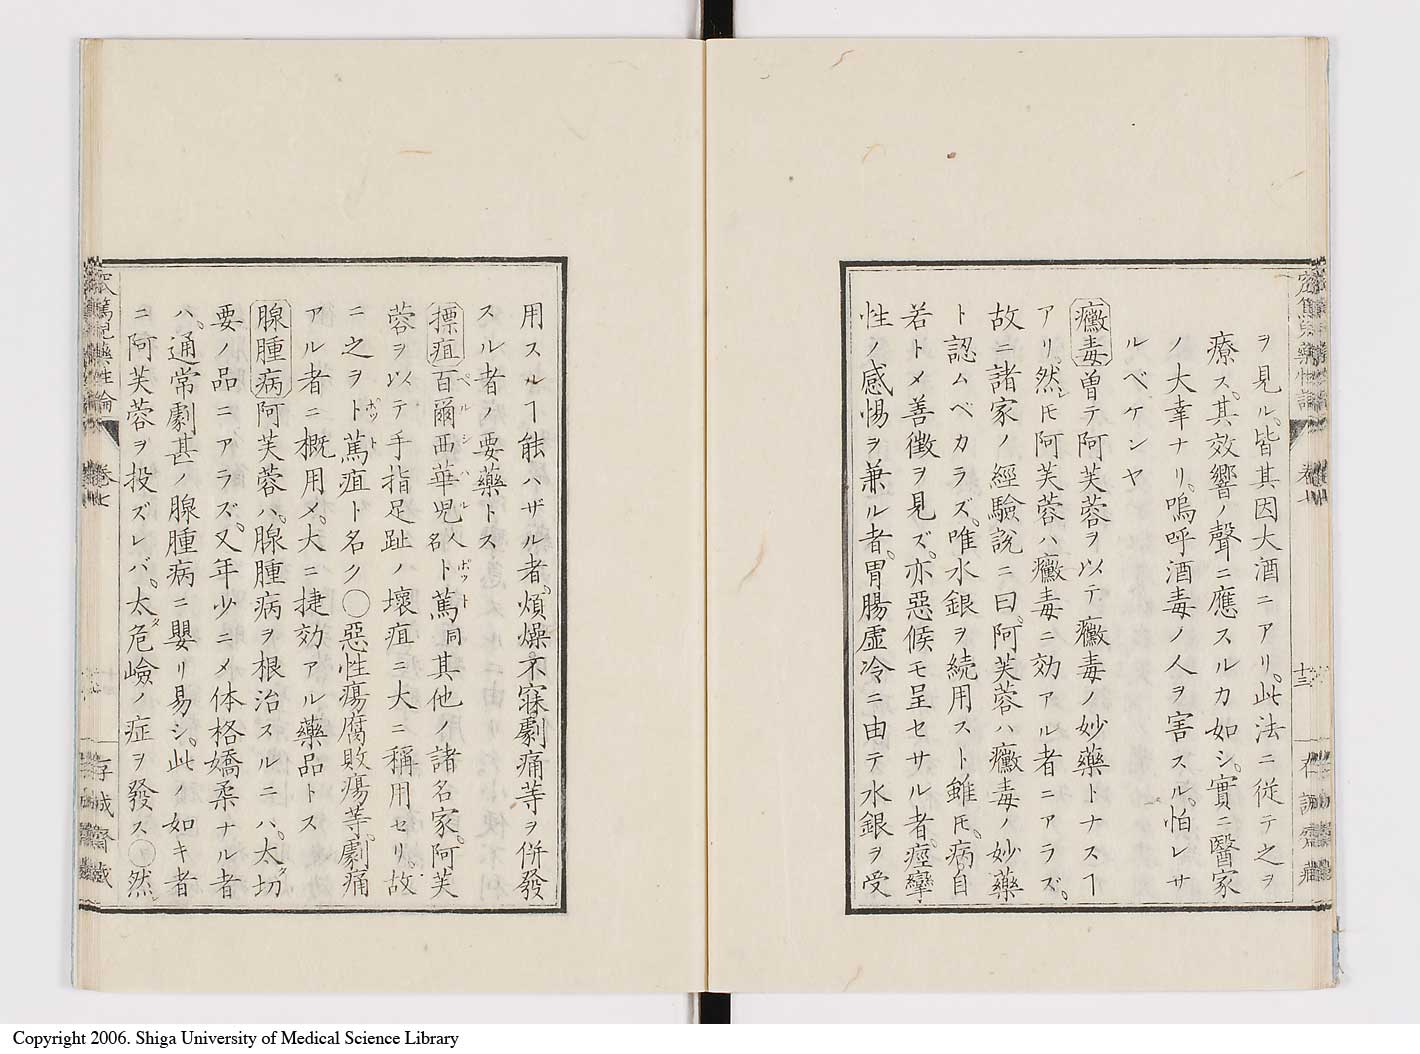 ヲ見ル。皆其因大酒ニアリ。此法ニ從テ之ヲ
療ス。其效響ノ聲ニ應スルカ如シ。實ニ醫家
ノ大幸ナリ。嗚呼酒毒ノ人ヲ害スル。怕レサ
ルベケンヤ
癥毒曽テ阿芙蓉ヲ以テ癥毒ノ妙藥トナスヿ
アリ。然レ𪜈阿芙蓉ハ癥毒ニ効アル者ニアラズ。
故ニ諸家ノ經驗説ニ曰。阿芙蓉ハ癥毒ノ妙藥
ト認ムベカラズ。唯水銀ヲ続用スト雖𪜈。病自
若トメ善徴ヲ見ズ。亦惡候モ呈セサル者。痙攣
性ノ感惕ヲ兼ル者。胃腸虚冷ニ由テ水銀ヲ受
用スルヿ能ハザル者。煩燥不寐劇痛等ヲ併發
スル者ノ要藥トス
摽疽百爾西華児人名ト篤同其他ノ諸名家。阿芙
ペルシハル ポット
蓉ヲ以テ手指足趾ノ壞疽ニ大ニ稱用セリ。故
ニ之ヲポット篤疽ト名ク〇惡性瘍腐敗瘍等。劇痛
アル者ニ概用メ。大ニ捷効アル藥品トス
腺腫病阿芙蓉ハ。腺腫病ヲ根治スルニハ。太切
要ノ品ニアラズ。又年少ニメ体格嬌柔ナル者
ハ。通常劇甚ノ腺腫病ニ嬰リ易シ。此ノ如キ者
ニ阿芙蓉ヲ投ズレバ。太危嶮ノ症ヲ發ス〇然
篤児藥性論
卷七
十三
Copyright 2006. Shiga University of Medical Science Library